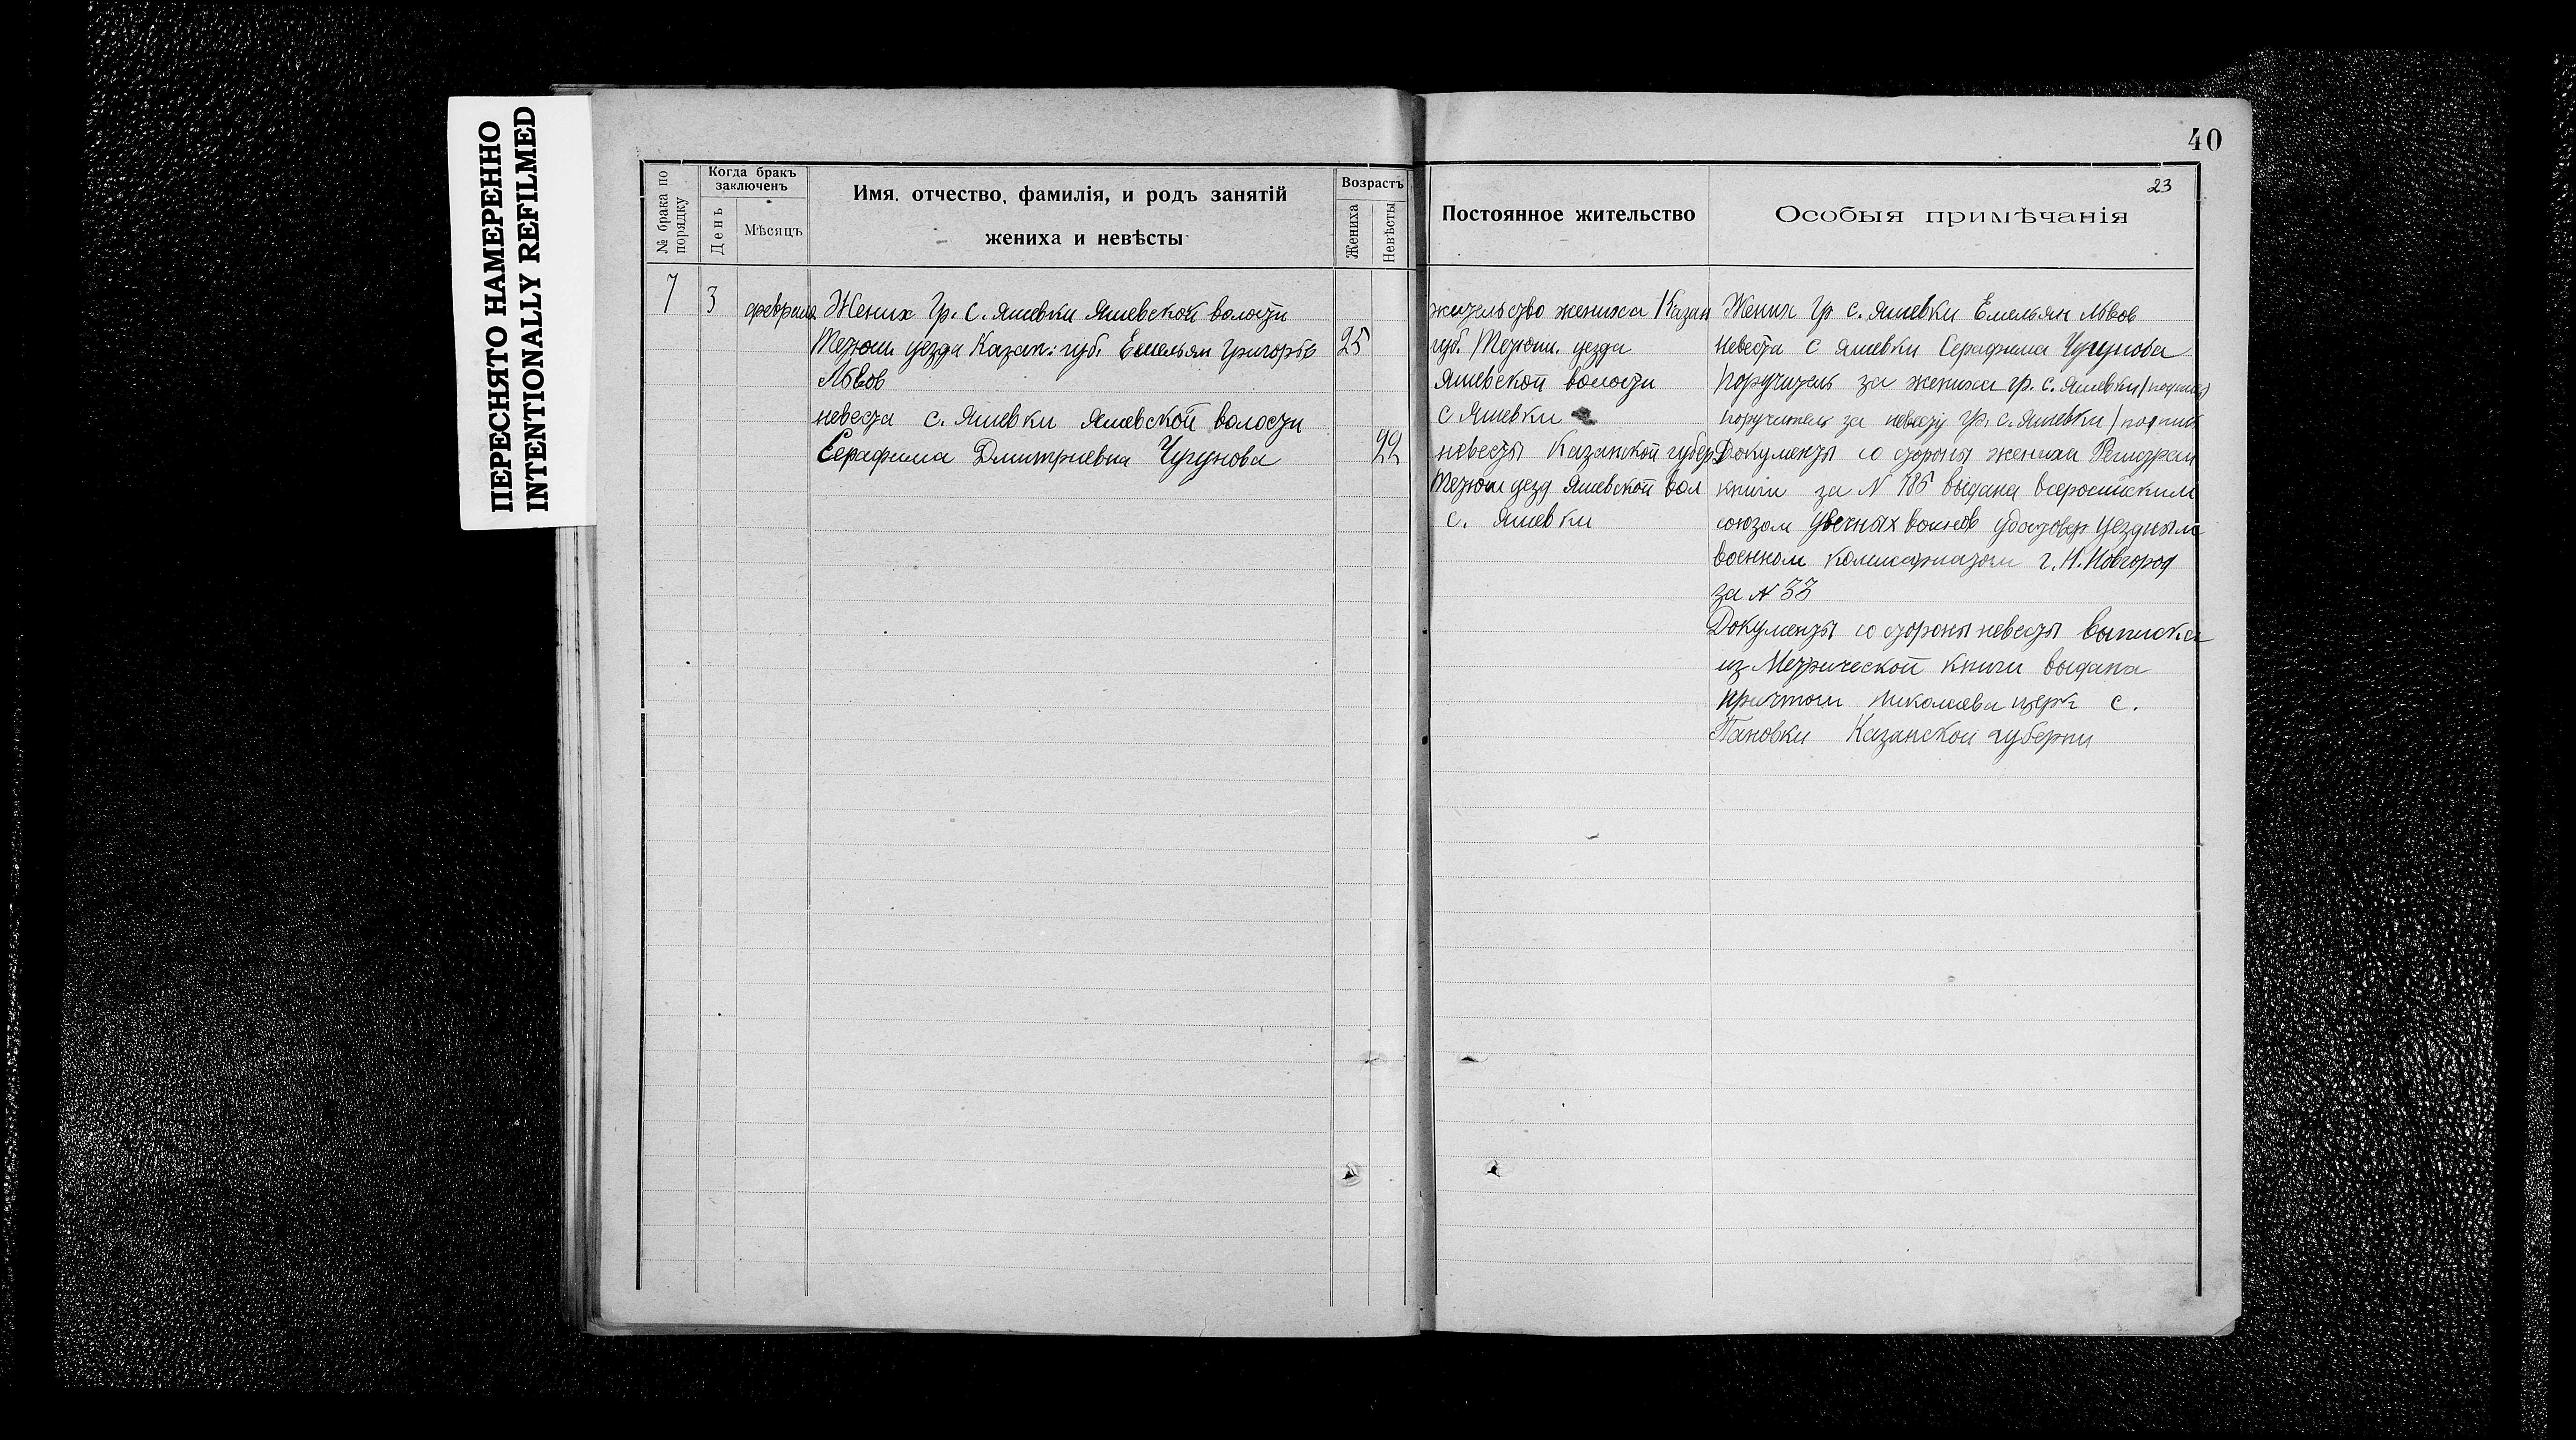 ПЕРЕСНЯТО НАМЕРЕННО
INTENTIONALLY REFILMED
40
23
№ брака по порядку
Когда бракъ заключенъ
День
Мѣсяцъ
Имя, отчество, фамилія, и родъ занятій
жениха и невѣсты
Возрастъ
Жениха
Невѣсты
Постоянное жительство
Особыя примѣчанія
7
3
февраля
Жених гр. с. Яшевки Яшевской волости
Тетюш. уезда Казан: губ. Емельян Григорьев
Львов
25
невеста с. Яшевки Яшевской волости
Серафима Дмитриевна Чугунова
22
жительство жениха Казан
губ. Тетюш. уезда
Яшевской волости
с Яшевки
невесты Казанской губер
Тетюш уезд Яшевской вол
с. Яшевки
Жених гр с. Яшевки Емельян Львов
невеста с Яшевки Серафима Чугунова
поручитель за жениха гр. с. Яшевки /подпись/
поручитель за невесту гр. с. Яшевки / подпись
Документы со стороны жениха
книги за N 785 выдана всеросийским
союзом увечных воинов уездным
военном комисариатом г. Н. Новгород
за N 33
Документы со стороны невесты выписка
из Метрической книги выдана
причтом Николаева церк с.
Пановки Казанской губерни